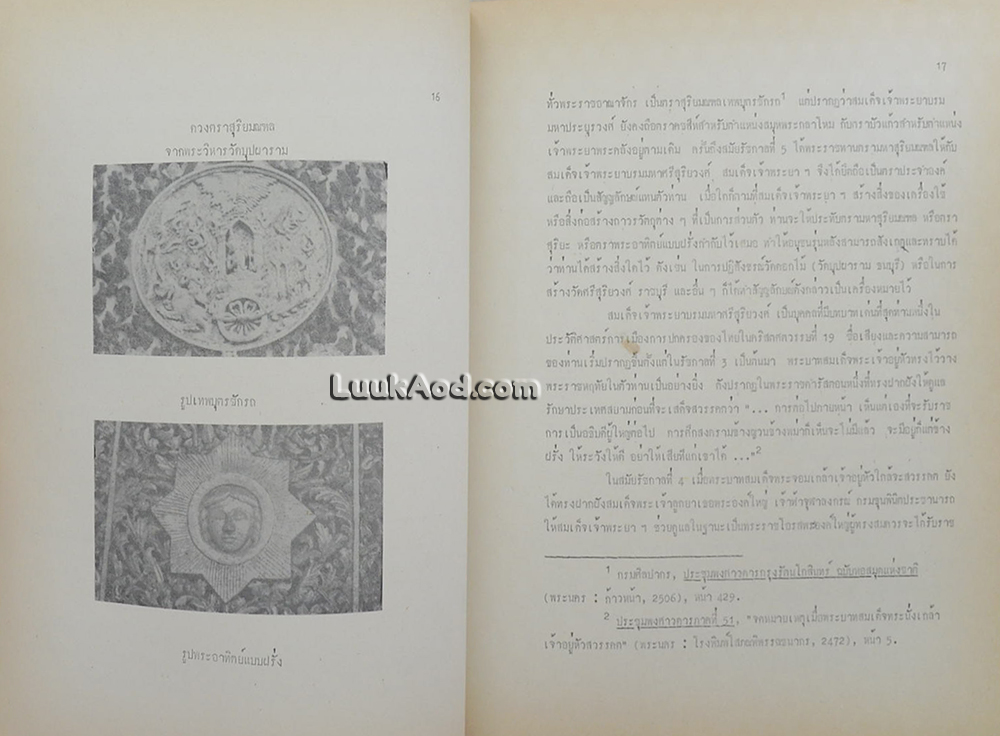 16
ดวงตราสุริยมณฑล
จากพระวิหารวัดบุปผาราม
LuukAod.com
รูปเทพบุตรชักรถ
รูปพระอาทิตย์แบบฝรั่ง
17
ทั่วพระราชอาณาจักร เป็นตราสุริยมณฑลเทพบุตรชักรถ1 แต่ปรากฏว่าสมเด็จเจ้าพระยาบรม
มหาประยุรวงศ์ ยังคงถือตราคชสีห์สำหรับตำแหน่งสมุหพระกลาโหม กับตราบัวแก้วสำหรับตำแหน่ง
เจ้าพระยาพระคลังอยู่ตามเดิม ครั้นถึงสมัยรัชกาลที่ 5 ได้พระราชทานตรามหาสุริยมณฑลให้กับ
สมเด็จเจ้าพระยาบรมมหาศรีสุริยวงศ์ สมเด็จเจ้าพระยา ฯ จึงได้ยึดถือเป็นตราประจำองค์
และถือเป็นสัญลักษณ์แทนตัวท่าน เมื่อใดก็ตามที่สมเด็จเจ้าพระยา ฯ สร้างสิ่งของเครื่องใช้
หรือสิ่งก่อสร้างถาวรวัตถุต่าง ๆ ที่เป็นการส่วนตัว ท่านจะให้ประทับตรามหาสุริยมณฑล หรือตรา
สุริยะ หรือตราพระอาทิตย์แบบฝรั่งกำกับไว้เสมอ ทำให้อนุชนรุ่นหลังสามารถสังเกตและทราบได้
ว่าท่านได้สร้างสิ่งใดไว้ ดังเช่น ในการปฏิสังขรณ์วัดดอกไม้ (วัดบุปผาราม ธนบุรี) หรือในการ
สร้างวัดศรีสุริยวงศ์ ราชบุรี และอื่น ๆ ก็ได้ทำสัญลักษณ์ดังกล่าวเป็นเครื่องหมายไว้
สมเด็จเจ้าพระยาบรมมหาศรีสุริยวงศ์ เป็นบุคคลที่มีบทบาทเด่นที่สุดท่านหนึ่งใน
ประวัติศาสตร์การเมืองการปกครองของไทยในคริสตศตวรรษที่ 19 ชื่อเสียงและความสามารถ
ของท่านเริ่มปรากฏขึ้นตั้งแต่ในรัชกาลที่ 3 เป็นต้นมา พระบาทสมเด็จพระเจ้าอยู่หัวทรงไว้วาง
พระราชหฤทัยในตัวท่านเป็นอย่างยิ่ง ดังปรากฏในพระราชดำรัสตอนหนึ่งที่ทรงฝากฝังให้ดูแล
รักษาประเทศสยามก่อนที่จะเสด็จสวรรคตว่า "... การต่อไปภายหน้า เห็นแต่เองที่จะรับราช
การเป็นอธิบดีผู้ใหญ่ต่อไป การศึกสงครามข้างญวนข้างพม่าก็เห็นจะไม่มีแล้ว จะมีอยู่ก็แต่ข้าง
ฝรั่ง ให้ระวังให้ดี อย่าให้เสียทีแก่เขาได้ ..."2
ในสมัยรัชกาลที่ 4 เมื่อพระบาทสมเด็จพระจอมเกล้าเจ้าอยู่หัวใกล้จะสวรรคต ยัง
ได้ทรงฝากฝังสมเด็จพระเจ้าลูกยาเธอพระองค์ใหญ่ เจ้าฟ้าจุฬาลงกรณ์ กรมขุนพินิตประชานารถ
ให้สมเด็จเจ้าพระยา ฯ ช่วยดูแลในฐานะเป็นพระราชโอรสพระองค์ใหญ่ผู้ทรงสมควรจะได้รับราช
1 กรมศิลปากร, ประชุมพงศาวดารกรุงรัตนโกสินทร์ ฉบับหอสมุดแห่งชาติ
(พระนคร : ก้าวหน้า, 2506), หน้า 429.
2 ประชุมพงศาวดารภาคที่ 51, "จดหมายเหตุเมื่อพระบาทสมเด็จพระนั่งเกล้า
เจ้าอยู่หัวสวรรคต" (พระนคร : โรงพิมพ์โสภณพิพรรฒธนากร, 2472), หน้า 5.